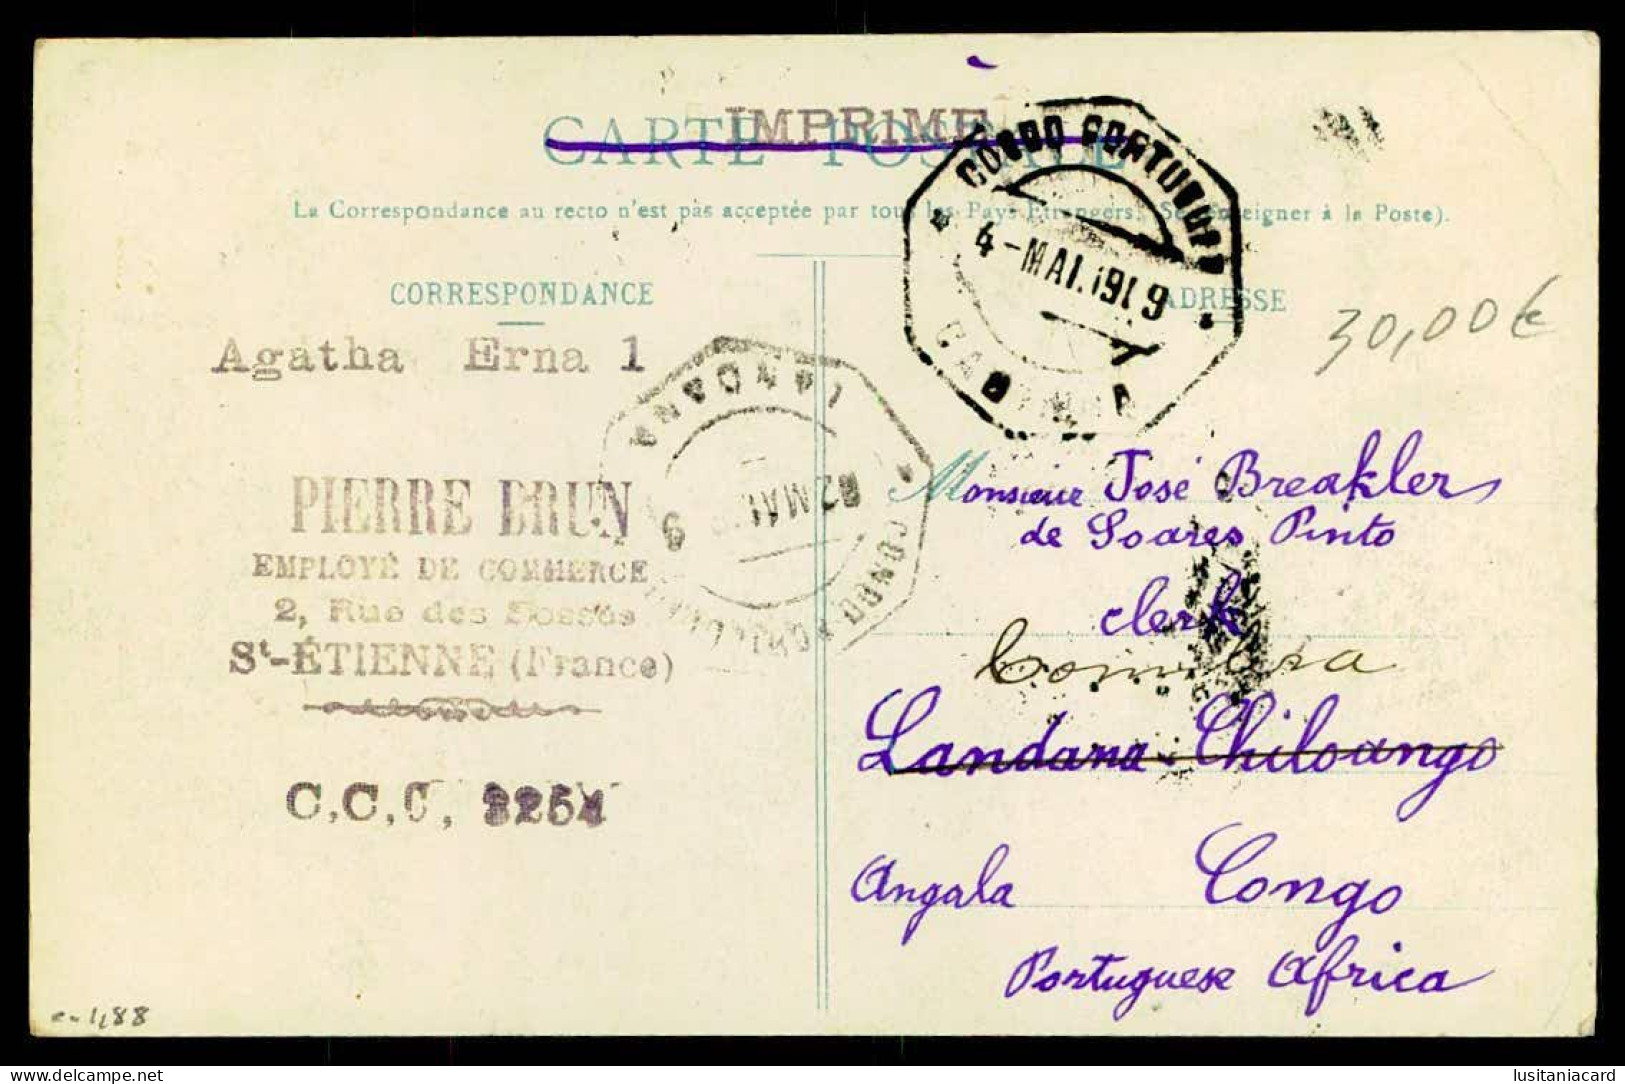 IMPRIME
CARTE POSTALE
La Correspondance au recto n'est pas acceptée par tous les Pays Etrangers. (Se renseigner à la Poste).
CORRESPONDANCE
ADRESSE
CONGO PORTUGUEZ
4-MAI.1919
CABINDA
30,00€
Agatha Erna 1
LANDANA
02 MAI
9
CONGO
PIERRE BRUN
EMPLOYÉ DE COMMERCE
2, Rue des
St-ÉTIENNE (France)
C.C.C, 3254
Monsieur José Breakler
de Soares Pinto
clerk
Landana-Chiloango
Angala Congo
Portuguese Africa
e-1,88
lusitaniacard